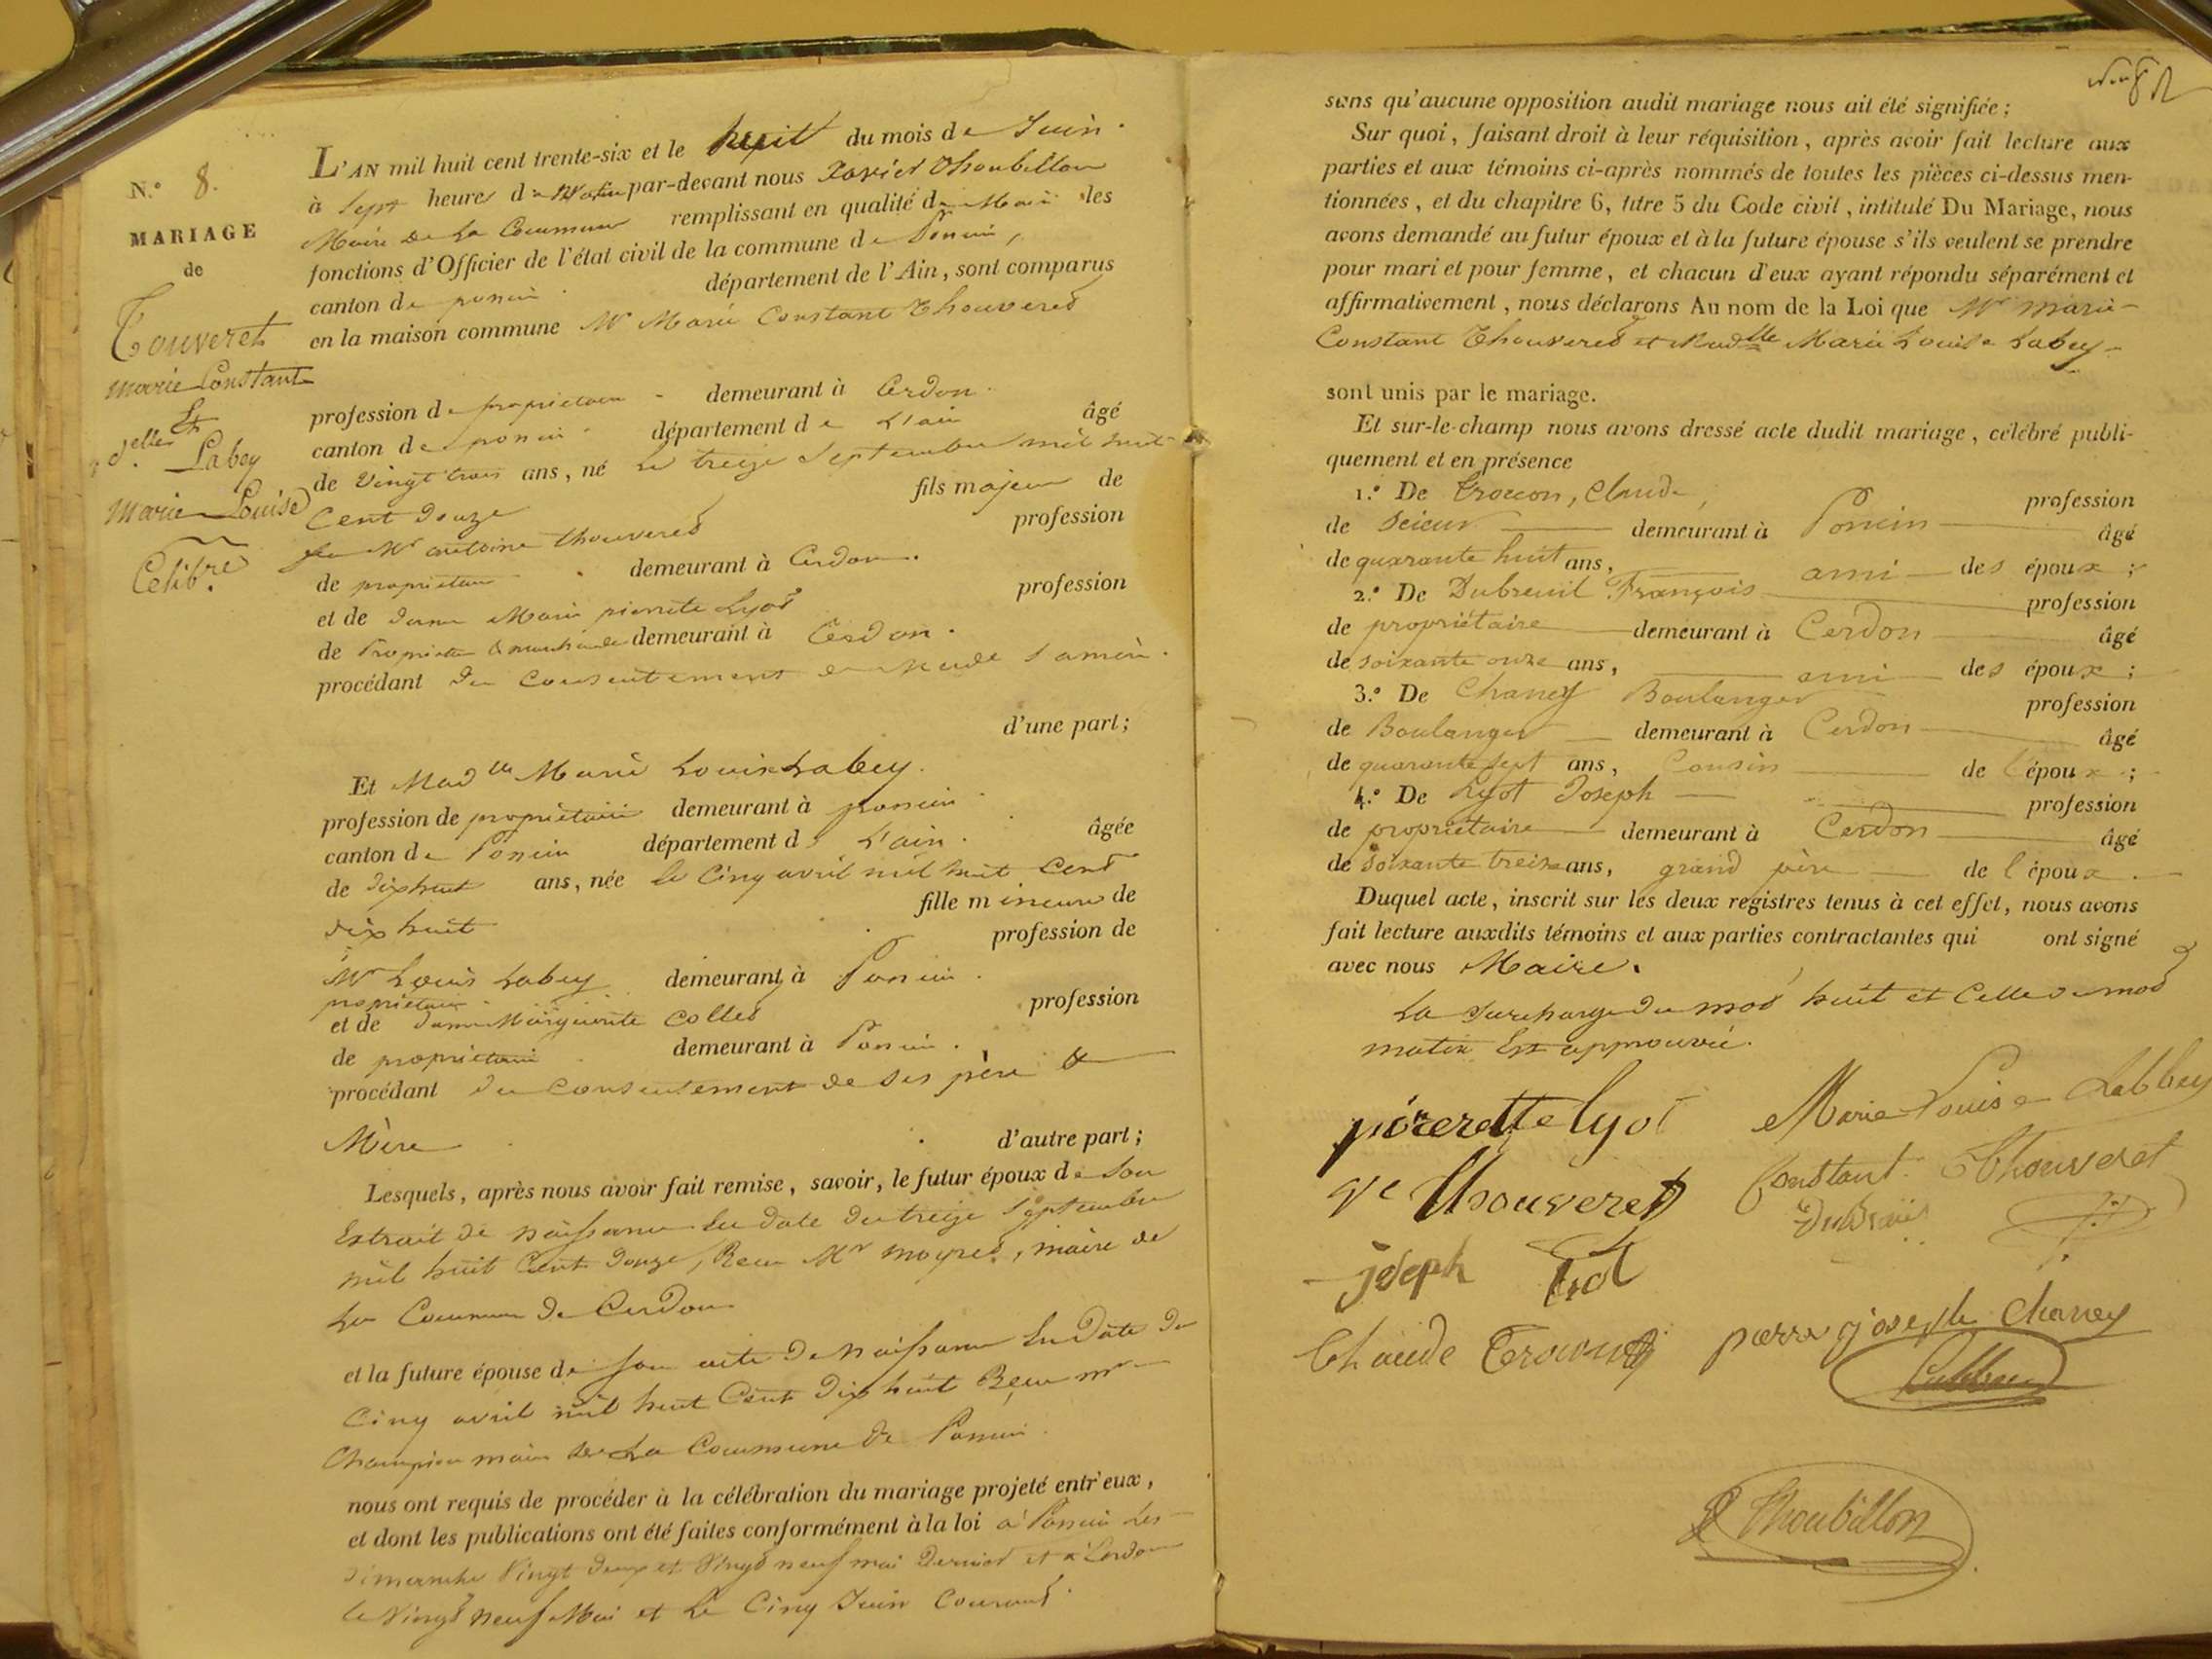 N.° 8.
MARIAGE
de
Touveret
marie Constant
Et
delle Labey
marie Louise
Célibre
L'AN mil huit cent trente-six et le huit du mois de Juin.
à Sept heures du Matin par-devant nous Xavier Thoubillon
Maire De La Commune remplissant en qualité de Maire les
fonctions d'Officier de l'état civil de la commune de Poncin,
canton de poncin département de l'Ain, sont comparus
en la maison commune Mr Marie Constant Thouveret
profession de propriétaire demeurant à Cerdon.
canton de poncin département de L'ain âgé
de Vingt trois ans, né Le treize Septembre mil huit
Cent Douze fils majeur de
feu Mr antoine thouveret profession
de propriétaire demeurant à Cerdon.
et de dame Marie pierrette Lyot profession
de Propriétaire & marchande demeurant à Cerdon.
procédant du Consentement de sa mère.
d'une part;
Et Madlle Marie Louise Labey.
profession de propriétaire demeurant à poncin
canton de Poncin département de L'ain. âgée
de dix huit ans, née le Cinq avril mil huit Cent
dix huit fille mineure de
Mr Louis Labey demeurant à Poncin. profession de
propriétaire
et de dame Marguerite Collet profession
de propriétaire demeurant à Poncin.
procédant du Consentement de ses père &
Mère d'autre part;
Lesquels, après nous avoir fait remise, savoir, le futur époux de Son
Extrait de naissance En date du treize Septembre
mil huit Cent Douze, Reçu Mr moyret, maire de
La Commune De Cerdon
et la future épouse de Son acte De naissance En Date du
Cinq avril mil huit Cent Dix huit Reçu mr
Champion maire de La Commune de Poncin.
nous ont requis de procéder à la célébration du mariage projeté entr'eux,
et dont les publications ont été faites conformément à la loi à Poncin Les
dimanche Vingt deux et Vingt neuf mai Dernier et à Cerdon
le Vingt neuf Mai et Le Cinq Juin Courant.
sans qu'aucune opposition audit mariage nous ait été signifiée;
Sur quoi, faisant droit à leur réquisition, après avoir fait lecture aux
parties et aux témoins ci-après nommés de toutes les pièces ci-dessus men-
tionnées, et du chapitre 6, titre 5 du Code civil, intitulé Du Mariage, nous
avons demandé au futur époux et à la future épouse s'ils veulent se prendre
pour mari et pour femme, et chacun d'eux ayant répondu séparément et
affirmativement, nous déclarons Au nom de la Loi que Mr marie
Constant Thouveret et Madlle Marie Louise Labey
sont unis par le mariage.
Et sur-le-champ nous avons dressé acte dudit mariage, célébré publi-
quement et en présence
1.° De Trocon, Claude, profession
de Scieur demeurant à Poncin âgé
de quarante huit ans, ami des époux;
2.° De Dubreuil François profession
de propriétaire demeurant à Cerdon âgé
de soixante onze ans, ami des époux;
3.° De Chaney Boulanger profession
de Boulanger demeurant à Cerdon âgé
de quarante sept ans, Cousin de l'époux;
4.° De Lyot Joseph profession
de propriétaire demeurant à Cerdon âgé
de soixante treize ans, grand père de l'époux.
Duquel acte, inscrit sur les deux registres tenus à cet effet, nous avons
fait lecture auxdits témoins et aux parties contractantes qui ont signé
avec nous Maire.
La Surcharge du mot huit et Celle du mot
matin Est approuvée.
pierrette lyot Marie Louise Labbey
ve Thouveret Constant Thouveret
joseph
Claude pierre joseph Chaney
Thoubillon